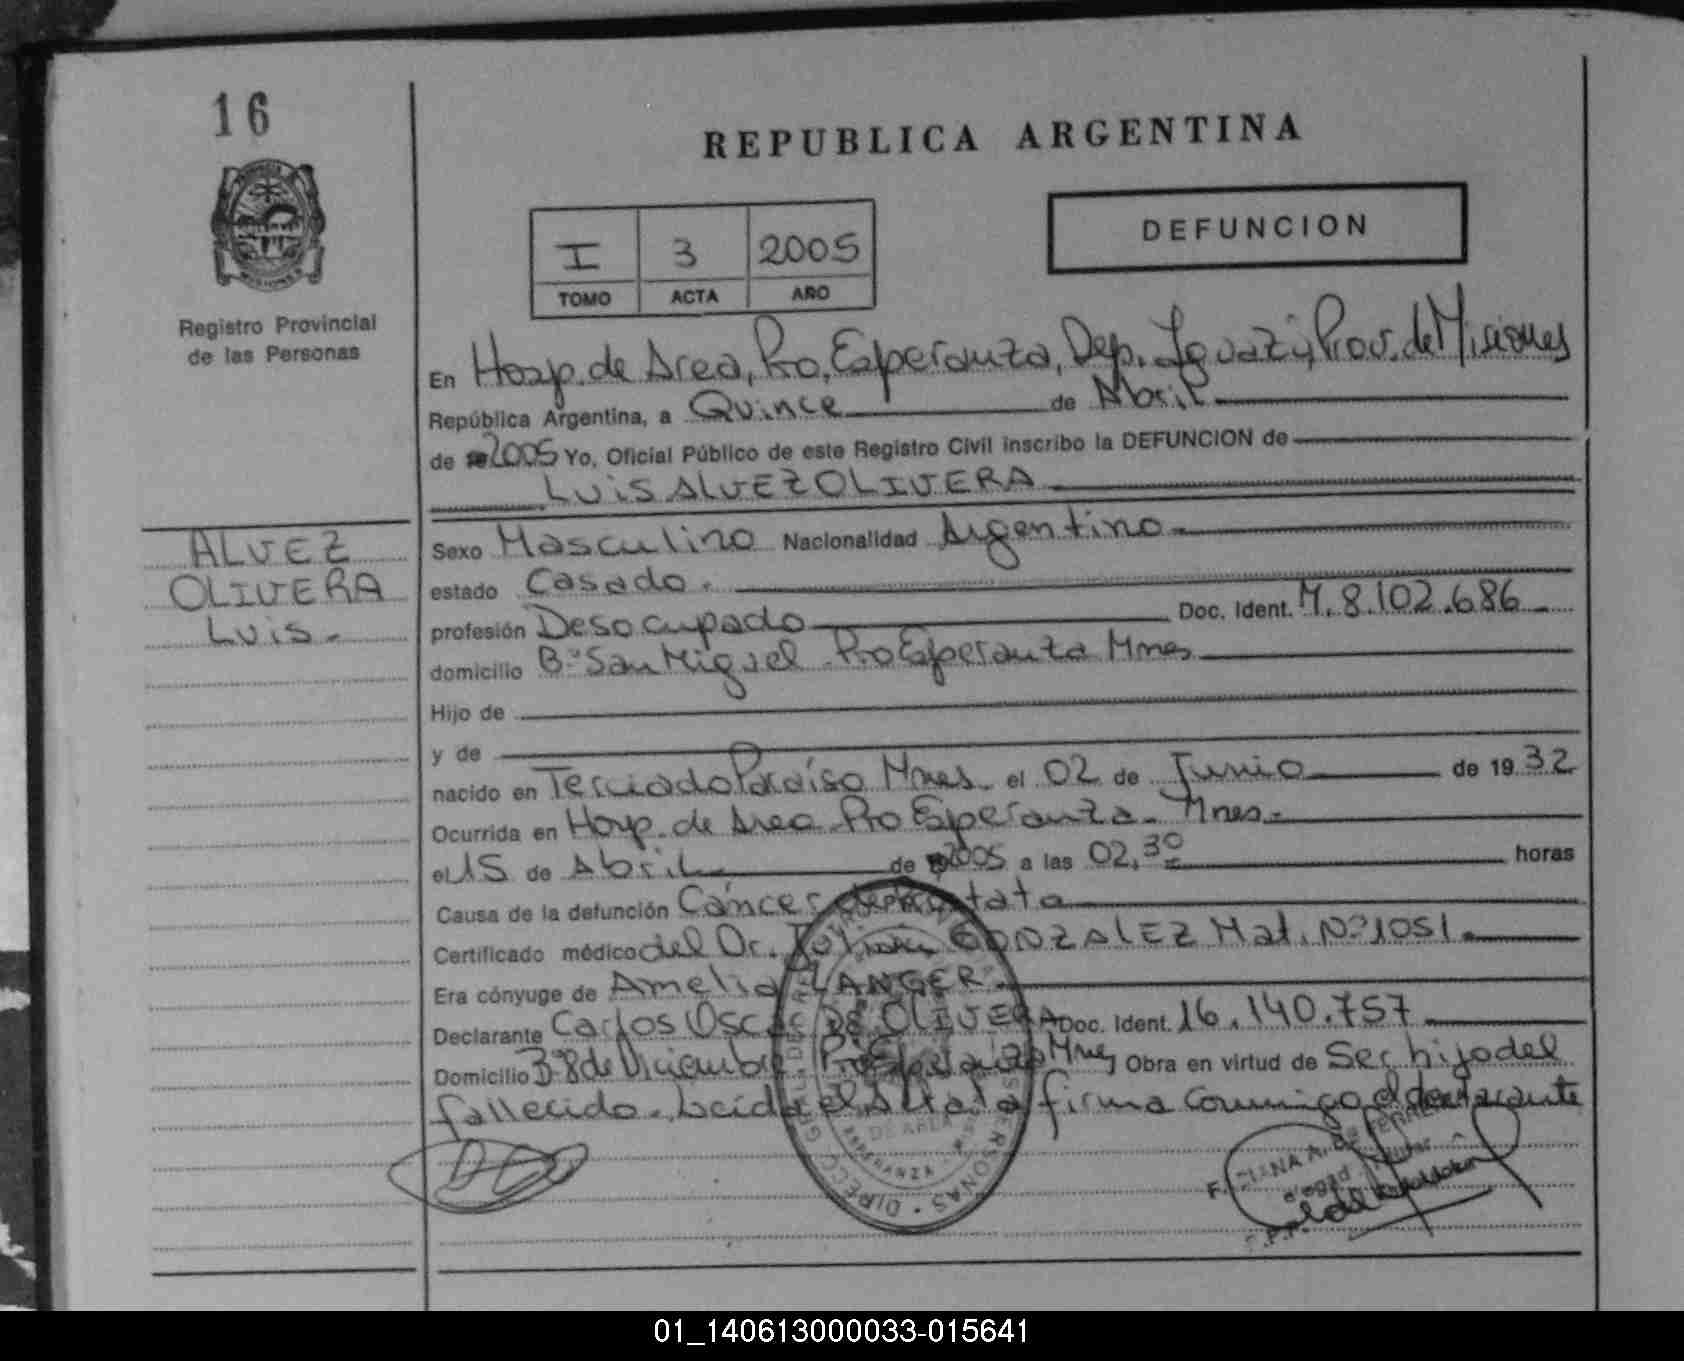 16
REPUBLICA ARGENTINA
I 3 2005
TOMO ACTA AÑO
DEFUNCION
Registro Provincial
de las Personas
ALVEZ
OLIVERA
Luis.-
En Hosp. de Area, Pto. Esperanza, Dep. Iguazú, Prov. de Misiones
República Argentina, a Quince de Abril
de 2005 Yo, Oficial Público de este Registro Civil inscribo la DEFUNCION de
LUIS ALVEZ OLIVERA
Sexo Masculino Nacionalidad Argentino
estado Casado.
profesión Desocupado Doc. Ident. M. 8.102.686
domicilio B° San Miguel Pto Esperanza Mnes
Hijo de
y de
nacido en Terciado Paraíso Mnes el 02 de Junio de 1932
Ocurrida en Hosp. de Area Pto Esperanza Mnes.
el 15 de Abril de 2005 a las 02,30 horas
Causa de la defunción Cáncer de Próstata
Certificado médico del Dr. GONZALEZ Mat. N° 1051.
Era cónyuge de Amelia LANGER
Declarante Carlos Oscar DE OLIVERA Doc. Ident. 16.140.757
Domicilio B° 8 de Diciembre Pto Esperanza Mnes Obra en virtud de Ser hijo del
fallecido. Leída el Acta firma conmigo el declarante
DE AREA
ESPERANZA
DIRECC GRAL. DE PERSONAS
01_140613000033-015641